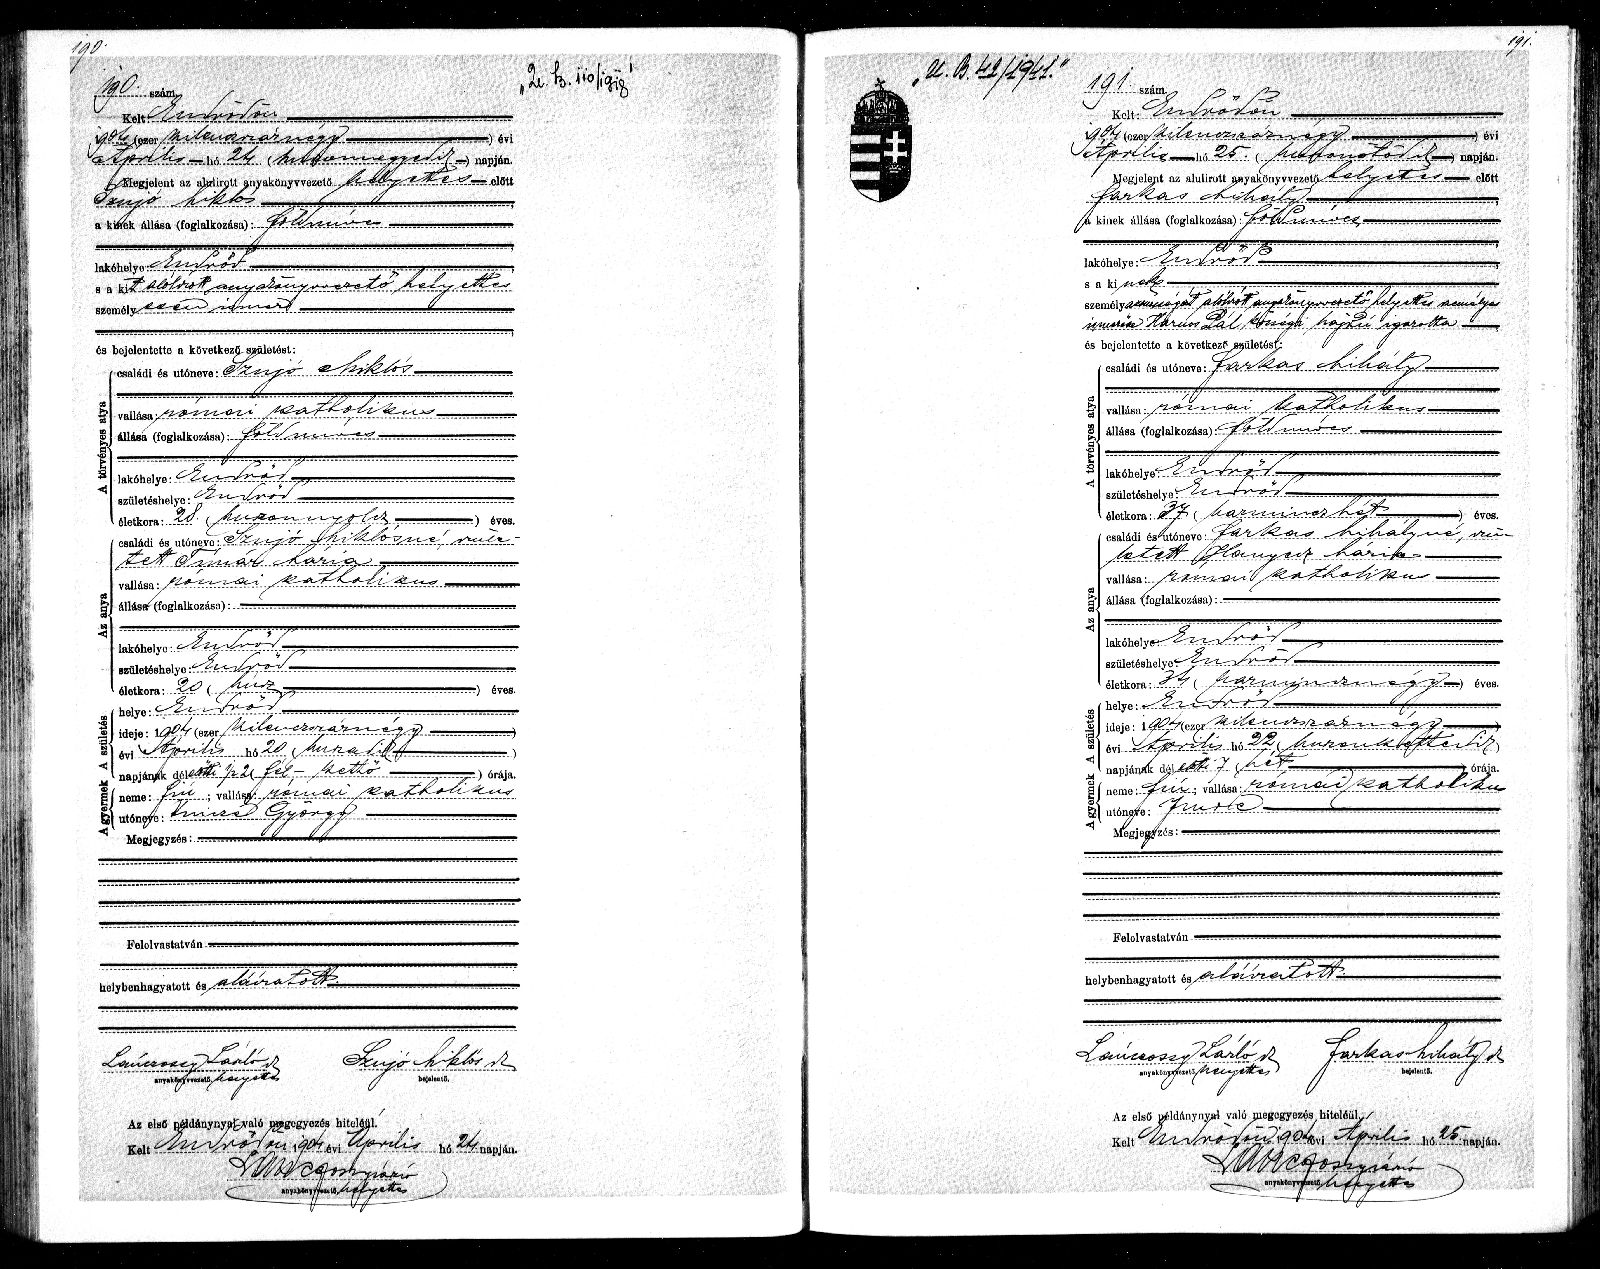 190.
190. szám.
„U. B. 110/1918"
Kelt Endrődön
1904 (ezer kilenczszáznégy ) évi
Április hó 24 ( huszonnegyedik ) napján.
Megjelent az alulirott anyakönyvvezető helyettes előtt
Szujó Miklós
a kinek állása (foglalkozása): földmüves
lakóhelye: Endrőd
s a kit alólirott anyakönyvvezető helyettes
személyesen ismer
és bejelentette a következő születést:
A törvényes atya
családi és utóneve: Szujó Miklós
vallása: római katholikus
állása (foglalkozása): földmüves
lakóhelye: Endrőd
születéshelye: Endrőd
életkora: 28 ( huszonnyolcz ) éves.
Az anya
családi és utóneve: Szujó Miklósné, szüle-
tett Timár Mária
vallása: római katholikus
állása (foglalkozása):
lakóhelye: Endrőd
születéshelye: Endrőd
életkora: 20 ( húsz ) éves.
A születés
helye: Endrőd
ideje: 1904 (ezer kilenczszáznégy )
évi Április hó 20 ( huszadik )
napjának délelőtti 1/2 2 ( fél-kettő ) órája.
A gyermek
neme: fiu ; vallása: római katholikus
utóneve: Imre György
Megjegyzés:
Felolvastatván
helybenhagyatott és aláiratott.
László s. k. Szujó Miklós s. k.
anyakönyvvezető helyettes bejelentő.
Az első példánynyal való megegyezés hiteléül.
Kelt Endrődön 1904 évi Április hó 24 napján.
anyakönyvvezető helyettes
191.
„U. B. 42/1941."
191. szám.
Kelt: Endrődön
1904 (ezer kilenczszáznégy ) évi
Április hó 25. ( huszonötödik ) napján.
Megjelent az alulirott anyakönyvvezető helyettes előtt
Farkas Mihály
a kinek állása (foglalkozása): földmüves
lakóhelye: Endrőd
s a kinek
személyazonosságát alólirott anyakönyvvezető helyettes személyes
ismerőse Harnos Pál községi hajdú igazolta
és bejelentette a következő születést:
A törvényes atya
családi és utóneve: Farkas Mihály
vallása: római katholikus
állása (foglalkozása): földmüves
lakóhelye: Endrőd
születéshelye: Endrőd
életkora: 37 ( harminczhét ) éves.
Az anya
családi és utóneve: Farkas Mihályné, szü-
letett Hanyecz Mária
vallása: római katholikus
állása (foglalkozása):
lakóhelye: Endrőd
születéshelye: Endrőd
életkora: 34 ( harmincznégy ) éves.
A születés
helye: Endrőd
ideje: 1904 (ezer kilenczszáznégy )
évi Április hó 22 ( huszonkettedik )
napjának délelőtti 7 ( hét ) órája.
A gyermek
neme: fiu ; vallása: római katholikus
utóneve: Imre
Megjegyzés:
Felolvastatván
helybenhagyatott és aláiratott.
László s. k. Farkas Mihály s. k.
anyakönyvvezető helyettes bejelentő.
Az első példánynyal való megegyezés hiteléül.
Kelt Endrődön 1904 évi Április hó 25 napján.
anyakönyvvezető helyettes